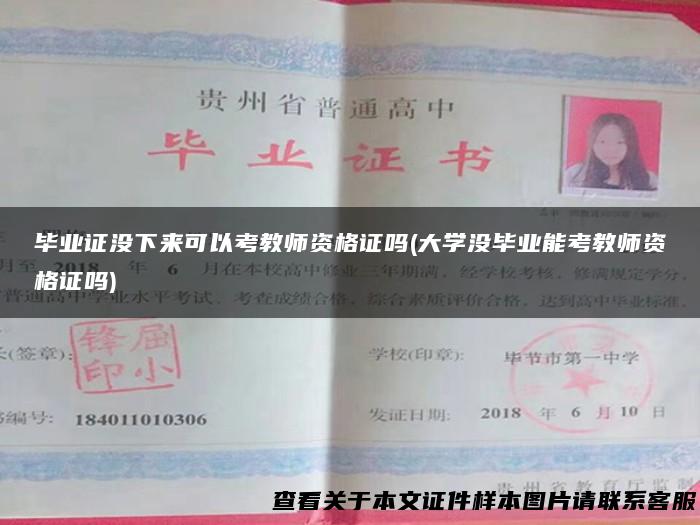 贵州省普通高中
毕业证书
毕业证没下来可以考教师资格证吗(大学没毕业能考教师资
格证吗)
月至 2018 年 6 月在本校高中修业三年期满，经学校考核，修满规定学分，
普通高中学业水平考试、考查成绩合格，综合素质评价合格，达到高中毕业标准，
(签章):
锋屈
印小
学校(印章): 毕节市第一中学
编号: 184011010306
发证日期: 2018 年 6 月 10 日
贵州省教育厅监制
查看关于本文证件样本图片请联系客服